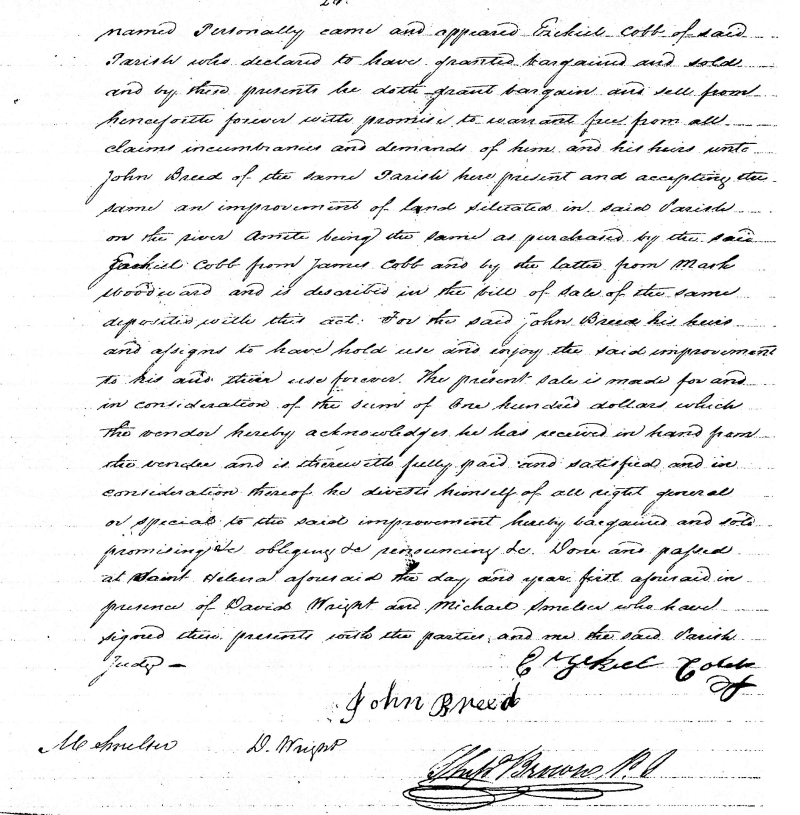 named Personally came and appeared Ezekiel Cobb of said
Parish who declared to have granted bargained and sold
and by these presents he doth grant bargain and sell from
henceforth forever with promise to warrant free from all
claims incumbrances and demands of him and his heirs unto
John Breed of the same Parish here present and accepting the
same an improvement of land situated in said Parish
on the river Amite being the same as purchased by the said
Ezekiel Cobb from James Cobb and by the latter from Mark
Woodward and is described in the bill of sale of the same
deposited with this act. For the said John Breed his heirs
and assigns to have hold use and enjoy the said improvement
to his and their use forever. The present sale is made for and
in consideration of the sum of One hundred dollars which
the vendor hereby acknowledges he has received in hand from
the vendee and is therewith fully paid and satisfied and in
consideration thereof he divests himself of all right general
or special to the said improvement hereby bargained and sold
promising &c obliging &c renouncing &c. Done and passed
at Saint Helena aforesaid the day and year first aforesaid in
presence of David Wright and Michael Smelser who have
signed these presents with the parties, and me the said Parish
Judge —
Ezekiel Cobb
John Breed
M Smelser D. Wright
Brown P. J